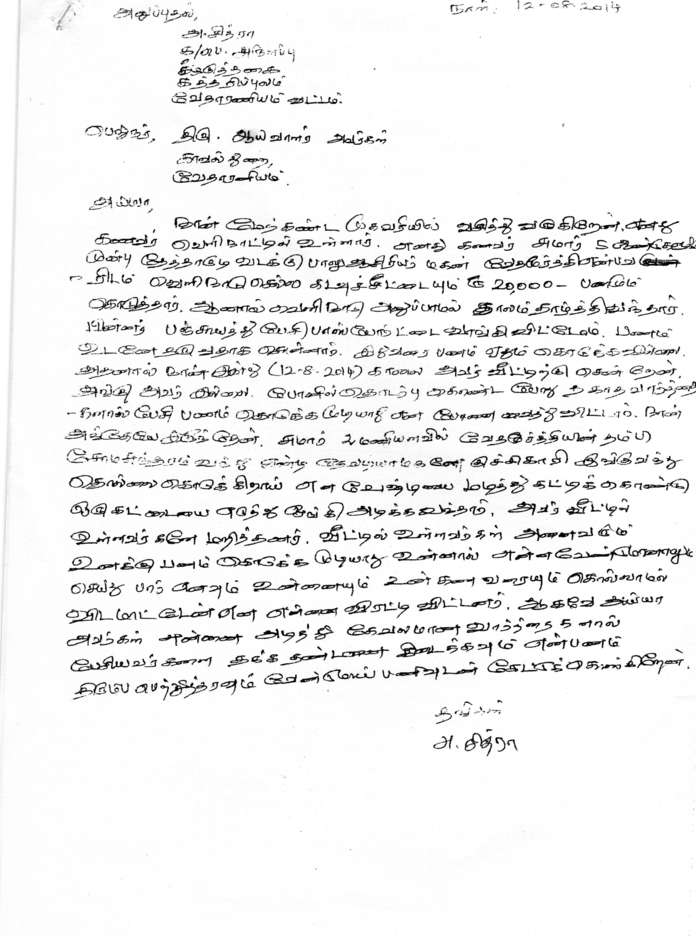 அனுப்புதல், நாள்: 12-08-2014
அ.சித்ரா
க/பெ. அ
கத்தரிப்புலம்
வேதாரணியம் வட்டம்.
பெறுநர், திரு. ஆய்வாளர் அவர்கள்
காவல் துறை,
வேதாரணியம்.
அய்யா,
நான் மேற்கண்ட முகவரியில் வசித்து வருகிறேன். எனது
கணவர் வெளிநாட்டில் உள்ளார். எனது கணவர் சுமார் 5
முன்பு வடக்கு பாலு ஆசிரியர் மகன் வேதமூர்த்தி என்பவ
-ரிடம் வெளிநாடு செல்ல கடவுச்சீட்டையும் ரூ 20,000- பணமும்
கொடுத்தார். ஆனால் வெளிநாடு அனுப்பாமல் காலம் தாழ்த்தி வந்தார்.
பின்னர் பஞ்சாயத்து பேசி பாஸ்போர்ட்டை வாங்கி விட்டோம். பணம்
உடனே தருவதாக சொன்னார். இதுவரை பணம் ஏதும் கொடுக்கவில்லை.
அதனால் நான் இன்று (12-8-2014) காலை அவர் வீட்டிற்கு சென்றேன்.
அங்கு அவர் இல்லை. போனில் தொடர்பு கொண்ட போது தகாத வார்த்தை
-களால் பேசி பணம் கொடுக்க முடியாது என போனை வைத்து விட்டார். நான்
அங்கேயே இருந்தேன். சுமார் 2 மணியளவில் வேதமூர்த்தியின் தம்பி
சோமசுந்தரம் வந்து இங்கு வந்து
தொல்லை கொடுக்கிறாய் என வேஷ்டியை மடித்து கட்டிக் கொண்டு
ஒரு கட்டையை எடுத்து ஓங்கி அடிக்க வந்தார். அவர் வீட்டில்
உள்ளவர்களே மறித்தனர். வீட்டில் உள்ளவர்கள் அனைவரும்
உனக்கு பணம் கொடுக்க முடியாது உன்னால் என்ன வேண்டுமானாலும்
செய்து பார் எனவும் உன்னையும் உன் கணவரையும் கொல்லாமல்
விட மாட்டேன் என என்னை விரட்டி விட்டனர். ஆகவே அய்யா
அவர்கள் என்னை அடித்து கேவலமான வார்த்தைகளால்
பேசியவர்களை தக்க தண்டனை கிடைக்கவும் என் பணம்
திரும்ப பெற்றுத்தரவும் பணிவுடன் கேட்டுக்கொள்கிறேன்.
இப்படிக்கு
அ. சித்ரா